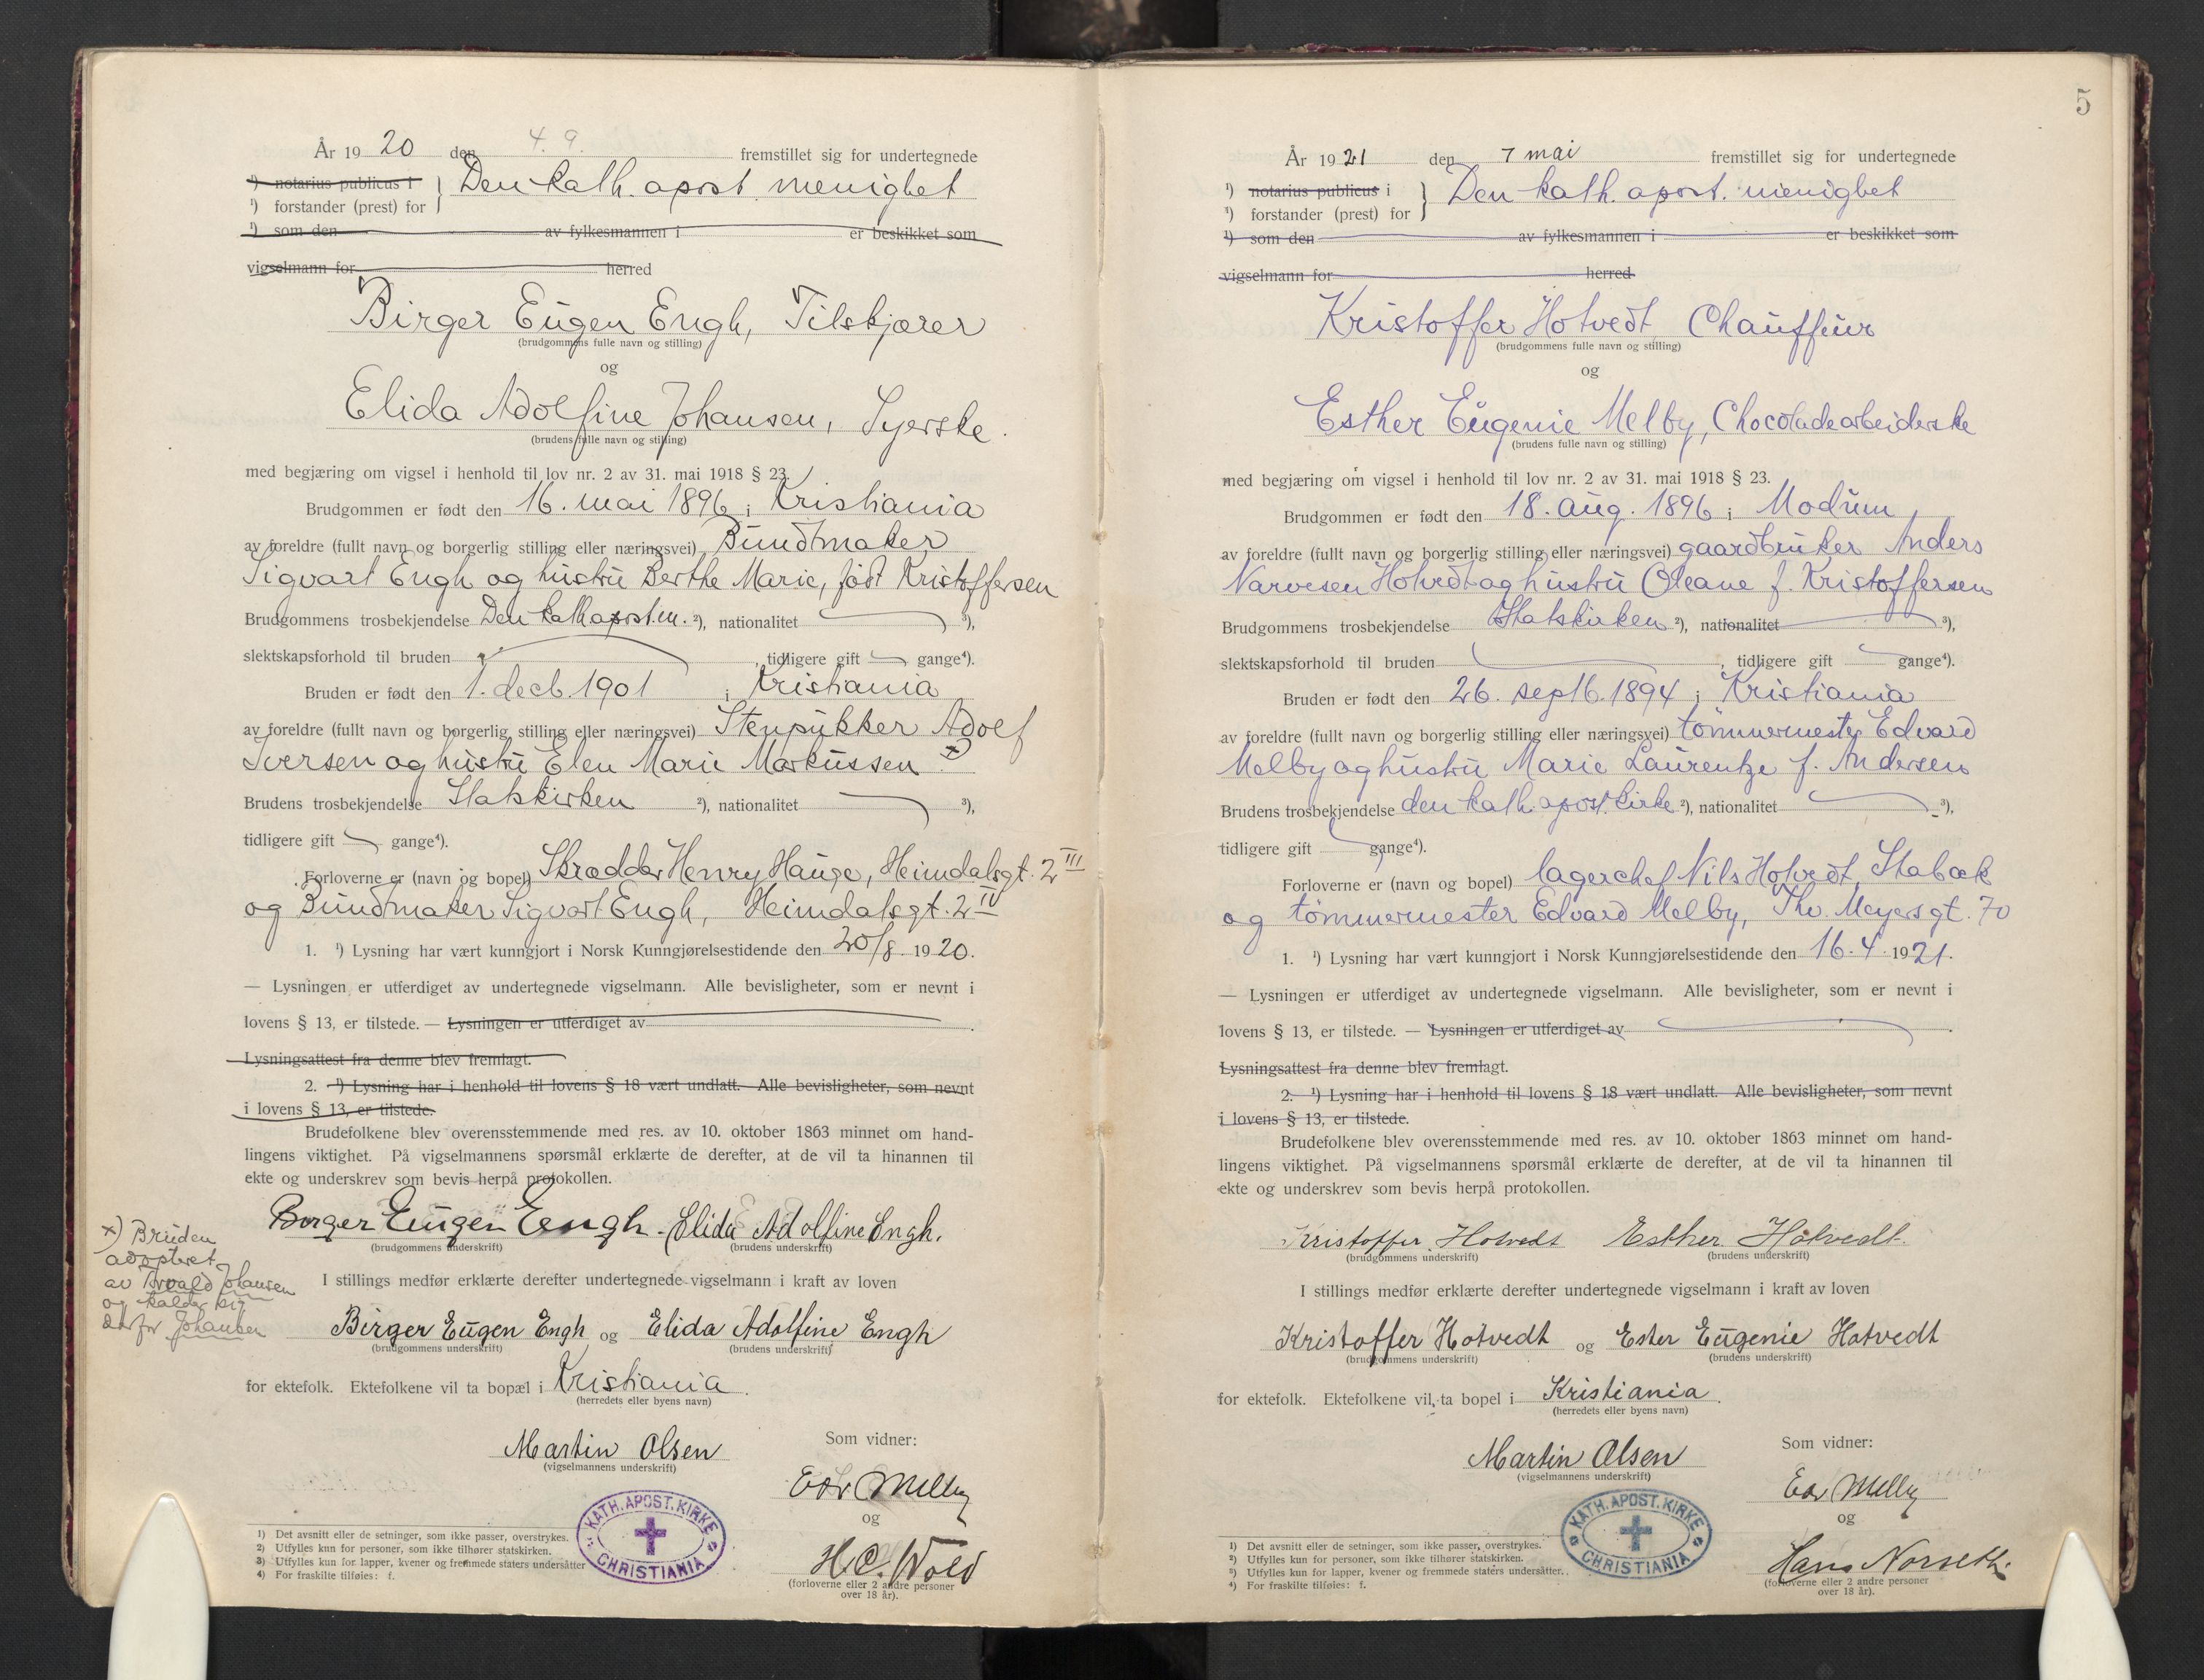 År 19 20 den 4. 9. fremstillet sig for undertegnede
¹) notarius publicus i
¹) forstander (prest) for } Den kath. apost. menighet
¹) som den av fylkesmannen i er beskikket som
vigselmann for herred
Birger Eugen Engh, Tilskjærer
(brudgommens fulle navn og stilling)
og
Elida Adolfine Johansen, Syerske.
(brudens fulle navn og stilling)
med begjæring om vigsel i henhold til lov nr. 2 av 31. mai 1918 § 23.
Brudgommen er født den 16. mai 1896 i Kristiania
av foreldre (fullt navn og borgerlig stilling eller næringsvei) Bundtmaker
Sigvart Engh og hustru Berthe Marie, født Kristoffersen
Brudgommens trosbekjendelse Den kath apost. m. ²), nationalitet ³),
slektskapsforhold til bruden , tidligere gift gange⁴).
Bruden er født den 1. decb. 1901 i Kristiania
av foreldre (fullt navn og borgerlig stilling eller næringsvei) Stenpukker Adolf
Iversen og hustru Elen Marie Markussen x)
Brudens trosbekjendelse Statskirken ²), nationalitet ³),
tidligere gift gange⁴).
Forloverne er (navn og bopel) Skrædder Henry Hauge, Heimdalsgt. 2 III
og Bundtmaker Sigvart Engh, Heimdalsgt. 2 IV
1. ¹) Lysning har vært kunngjort i Norsk Kunngjørelsestidende den 20/8 1920.
— Lysningen er utferdiget av undertegnede vigselmann. Alle bevisligheter, som er nevnt i
lovens § 13, er tilstede. — Lysningen er utferdiget av .
Lysningsattest fra denne blev fremlagt.
2. ¹) Lysning har i henhold til lovens § 18 vært undlatt. Alle bevisligheter, som nevnt
i lovens § 13, er tilstede.
Brudefolkene blev overensstemmende med res. av 10. oktober 1863 minnet om hand-
lingens viktighet. På vigselmannens spørsmål erklærte de derefter, at de vil ta hinannen til
ekte og underskrev som bevis herpå protokollen.
Birger Eugen Eengh. Elida Adolfine Engh.
(brudgommens underskrift) (brudens underskrift)
x) Bruden
adopteret
av Arvald Johansen
og kalder sig
derfor Johansen
I stillings medfør erklærte derefter undertegnede vigselmann i kraft av loven
Birger Eugen Engh og Elida Adolfine Engh
(brudgommens underskrift) (brudens underskrift)
for ektefolk. Ektefolkene vil ta bopæl i Kristiania.
(herredets eller byens navn)
Martin Olsen
(vigselmannens underskrift)
Som vidner:
Edv Melby
og
H.C. Wold
(forloverne eller 2 andre personer
over 18 år).
KATH. APOST. KIRKE
CHRISTIANIA
1) Det avsnitt eller de setninger, som ikke passer, overstrykes.
2) Utfylles kun for personer, som ikke tilhører statskirken.
3) Utfylles kun for lapper, kvener og fremmede staters undersåtter
4) For fraskilte tilføies: f.
5
År 19 21 den 7 mai fremstillet sig for undertegnede
¹) notarius publicus i
¹) forstander (prest) for } Den kath. apost. menighet
¹) som den av fylkesmannen i er beskikket som
vigselmann for herred
Kristoffer Hotvedt Chauffeur
(brudgommens fulle navn og stilling)
og
Esther Eugenie Melby, Chocoladearbeiderske
(brudens fulle navn og stilling)
med begjæring om vigsel i henhold til lov nr. 2 av 31. mai 1918 § 23.
Brudgommen er født den 18. aug. 1896 i Modum
av foreldre (fullt navn og borgerlig stilling eller næringsvei) gaardbruker Anders
Narvesen Hotvedt og hustru Oleane f. Kristoffersen
Brudgommens trosbekjendelse Statskirken ²), nationalitet ³),
slektskapsforhold til bruden , tidligere gift gange⁴).
Bruden er født den 26. septb. 1894 i Kristiania
av foreldre (fullt navn og borgerlig stilling eller næringsvei) tömmermester Edvard
Melby og hustru Marie Laurentze f. Andersen
Brudens trosbekjendelse den kath. apost. kirke ²), nationalitet ³),
tidligere gift gange⁴).
Forloverne er (navn og bopel) lagerchef Nils Hotvedt, Stabæk
og tömmermester Edvard Melby, Thv. Meyersgt. 70
1. ¹) Lysning har vært kunngjort i Norsk Kunngjørelsestidende den 16. 4. 1921.
— Lysningen er utferdiget av undertegnede vigselmann. Alle bevisligheter, som er nevnt i
lovens § 13, er tilstede. — Lysningen er utferdiget av .
Lysningsattest fra denne blev fremlagt.
2. ¹) Lysning har i henhold til lovens § 18 vært undlatt. Alle bevisligheter, som nevnt
i lovens § 13, er tilstede.
Brudefolkene blev overensstemmende med res. av 10. oktober 1863 minnet om hand-
lingens viktighet. På vigselmannens spørsmål erklærte de derefter, at de vil ta hinannen til
ekte og underskrev som bevis herpå protokollen.
Kristoffer Hotvedt Esther Hotvedt.
(brudgommens underskrift) (brudens underskrift)
I stillings medfør erklærte derefter undertegnede vigselmann i kraft av loven
Kristoffer Hotvedt og Ester Eugenie Hotvedt
(brudgommens underskrift) (brudens underskrift)
for ektefolk. Ektefolkene vil ta bopel i Kristiania.
(herredets eller byens navn)
Martin Olsen
(vigselmannens underskrift)
Som vidner:
Edv Melby
og
Hans Norseth
(forloverne eller 2 andre personer
over 18 år).
KATH. APOST. KIRKE
CHRISTIANIA
1) Det avsnitt eller de setninger, som ikke passer, overstrykes.
²) Utfylles kun for personer, som ikke tilhører statskirken.
³) Utfylles kun for lapper, kvener og fremmede staters undersåtter.
⁴) For fraskilte tilføies: f.